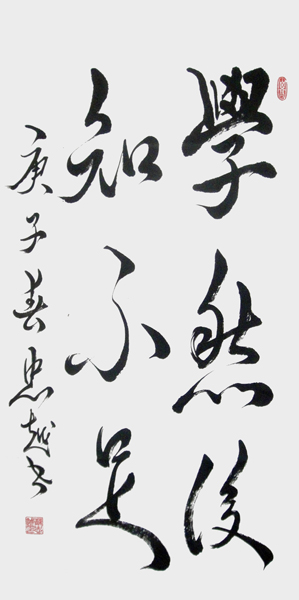 學然後
知不足
庚子春忠越书